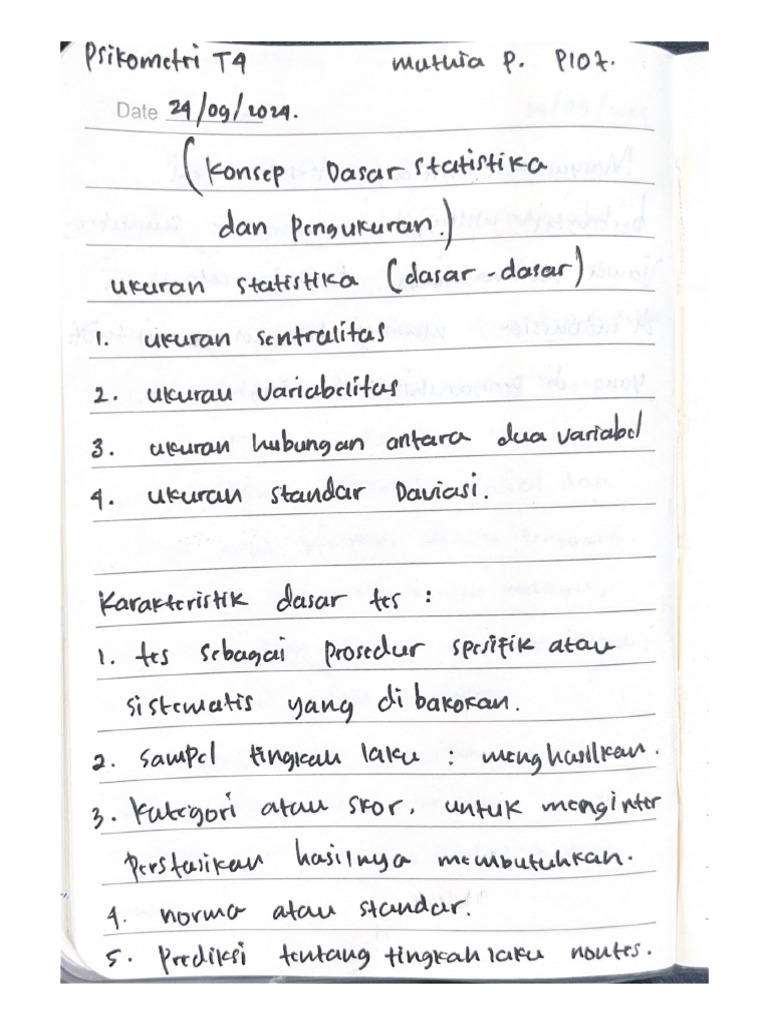 Psikometri T4 Muthia P. P107.
Date 24/09/2024.
(Konsep Dasar Statistika
dan Pengukuran.)
Ukuran statistika (dasar-dasar)
1. ukuran sentralitas
2. ukuran variabelitas
3. ukuran hubungan antara dua variabel
4. ukuran standar Daviasi.
Karakteristik dasar tes :
1. tes sebagai prosedur spesifik atau
sistematis yang di bakokan.
2. sampel tingkah laku : menghasilkan.
3. Kategori atau skor. untuk menginter
perstasikan hasilnya membutuhkan.
4. norma atau standar.
5. Prediksi tentang tingkah laku nontes.